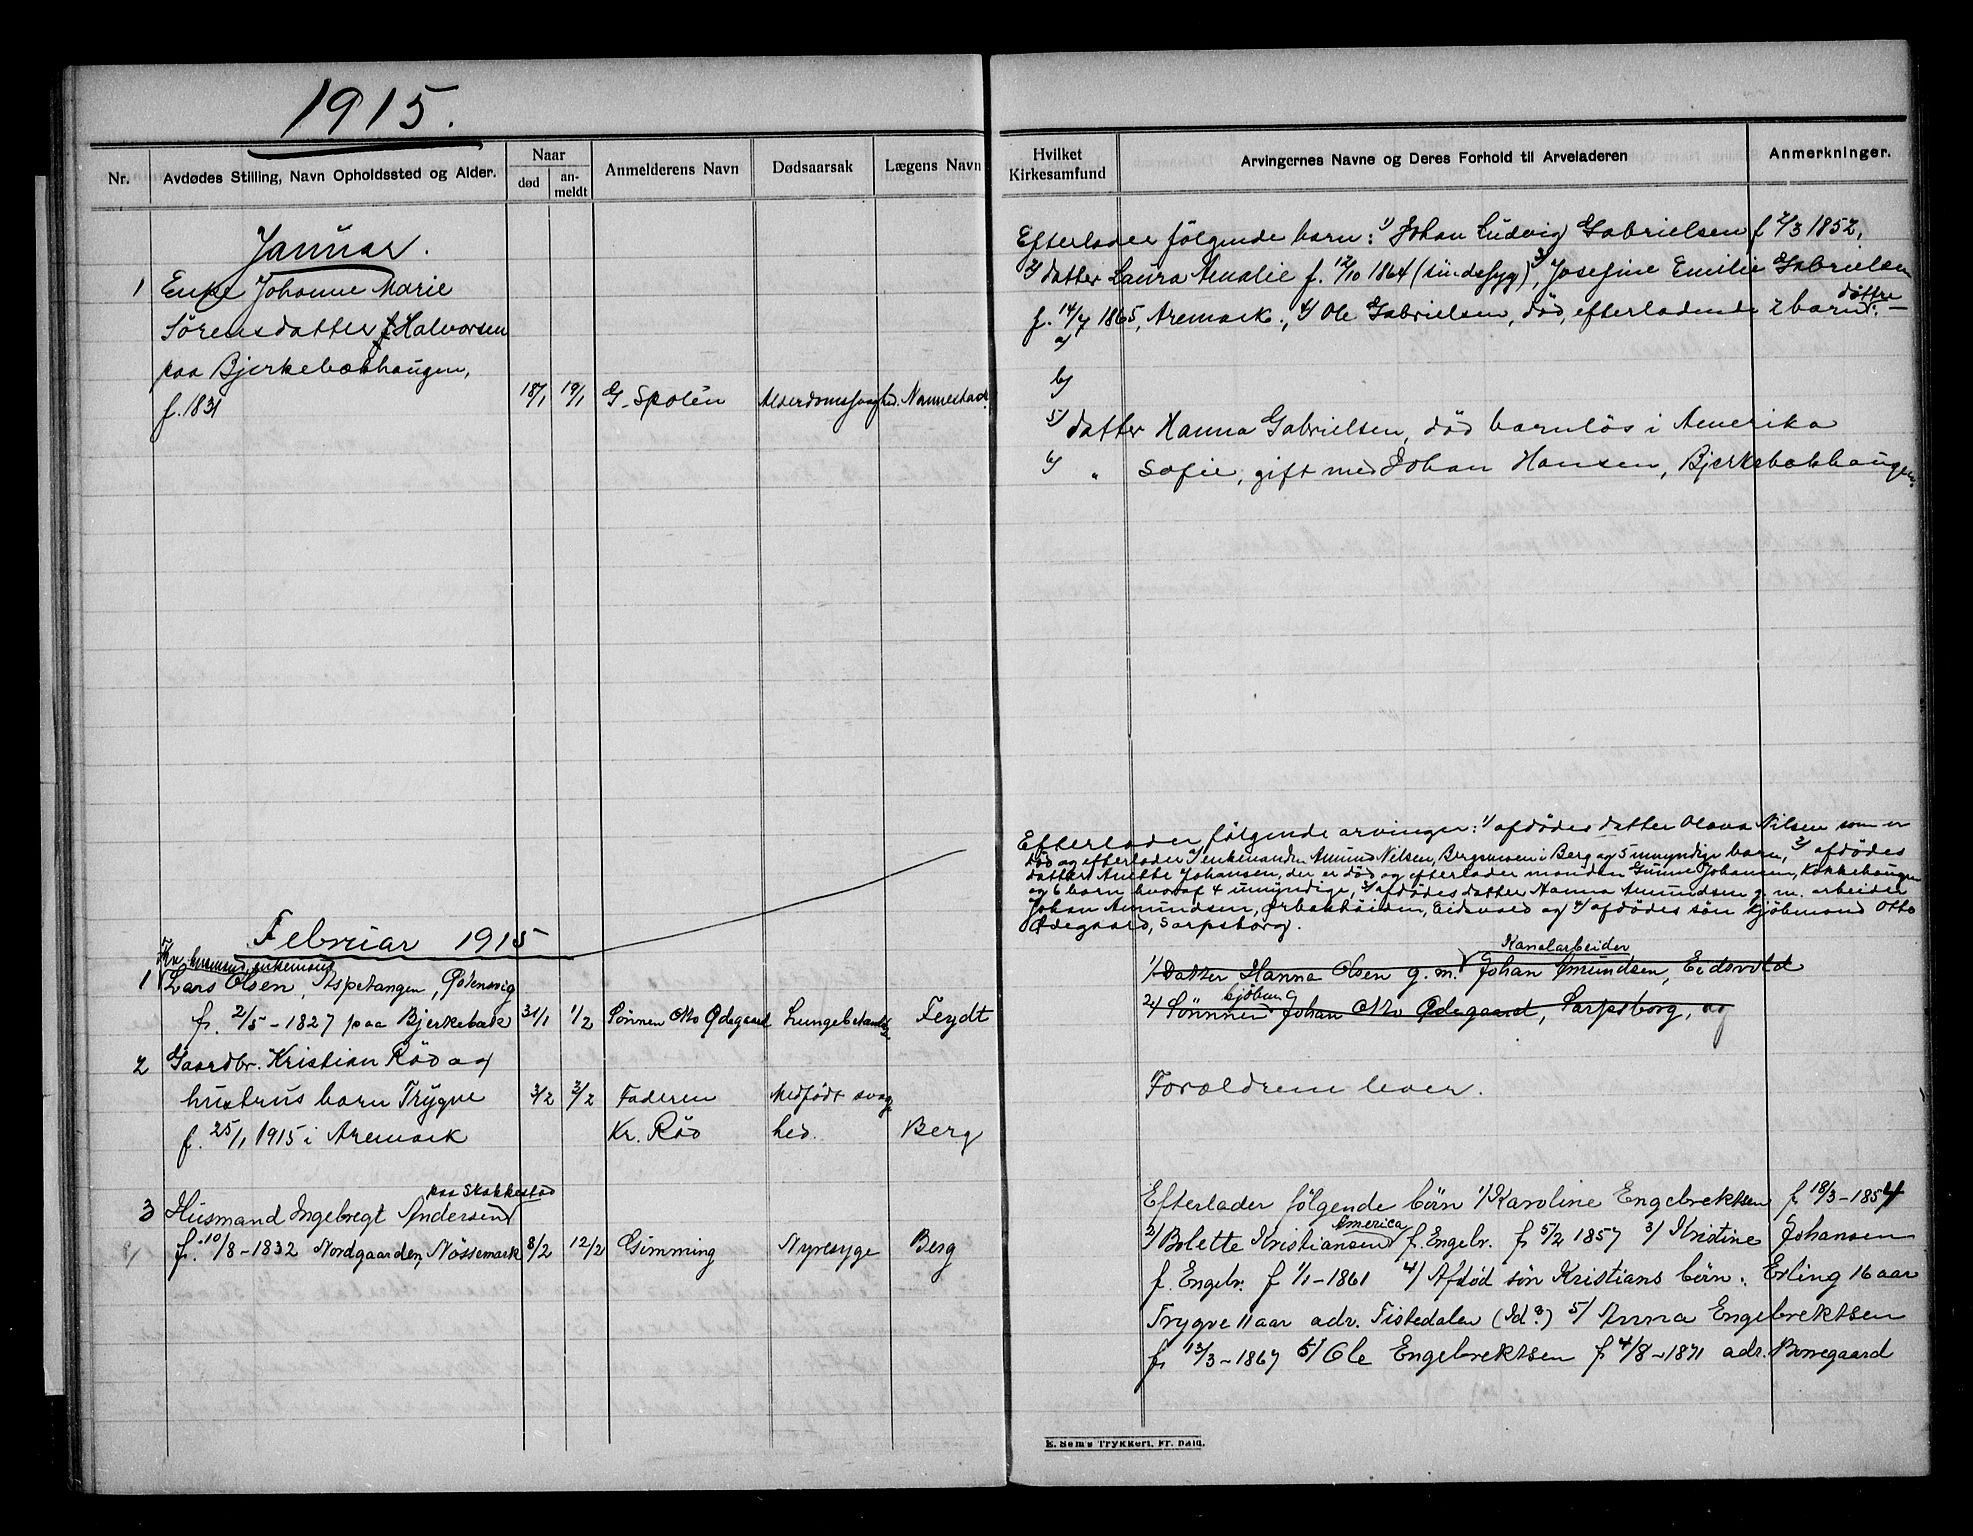 1915.
Nr. Avdødes Stilling, Navn Opholdssted og Alder. Naar død an-meldt Anmelderens Navn Dødsaarsak Lægens Navn
Januar.
1 Enke Johanne Marie
Sørensdatter f. Halvorsen
paa Bjerkebækhaugen,
f. 1831 18/1 19/1 G. Spolén Alderdomssvaghed. Nannestad.
Februar 1915
Fhv. husmand, enkemand
1 Lars Olsen, Aspetangen,
f. 2/5 - 1827 paa Bjerkebæk 31/1 1/2 Sønnen Otto Ødegaard Lungebetændelse Feydt
2 Gaardbr. Kristian Röd og
hustrus barn Trygve 3/2 3/2 Faderen Medfödt svag
f. 25/1 1915 i Aremark Kr. Röd hed. Berg
paa Skakkestad
3 Husmand Ingebregt Andersen
f. 10/8 - 1832 Nordgaarden, Nössemark 8/2 12/2 Gimming Nyresyge Berg
Hvilket Kirkesamfund Arvingernes Navne og Deres Forhold til Arveladeren Anmerkninger.
Efterlader följende barn: 1/ Johan Ludvig Gabrielsen f 2/3 1852,
2/ datter Laura Amalie f. 12/10 1864 (sindssyg), 3/ Josefine Emilie Gabrielsen
f. 14/7 1865, Aremark., 4/ Ole Gabrielsen, död, efterladende 2 barn döttre: —
a/
b/
5/ datter Hanna Gabrielsen, död barnlös i Amerika
6/ " Sofie, gift med Johan Hansen, Bjerkebækhaugen.
Efterlader følgende arvinger: 1/ afdödes datter Olava Nilsen som er
död og efterlader a/ enkemanden Amund Nilsen, Bergsmoen i Berg og 5 umyndige barn, 2/ afdödes
datter Anette Johansen, der er död og efterlader manden Gunne Johansen, Kokkehaugen
og 6 barn hvoraf 4 umyndige, 3/ afdödes datter Hanna Amundsen g. m. arbeider
Johan Amundsen, Ørbækhöiden, Eidsvold og 4/ afdödes sön kjöbmand Otto
Ødegaard, Sarpsborg.
Kanalarbeider
1/ Datter Hanna Olsen g. m. Johan Amundsen, Eidsvold
kjöbm
2/ Sønnner Johan Otto Ødegaard, Sarpsborg, og
Forældrene lever.
Efterlader fölgende börn 1/ Karoline Engebrektsen f 18/3 - 1854
2/ Bolette Kristiansen America f. Engebr. f 5/2 1857 3/ Kristine Johansen
f. Engebr. f 1/1 - 1861 4/ Afdöd sön Kristians börn: Erling 16 aar
Trygve 11 aar adr. Tistedalen (Id?) 5/ Anna Engebrektsen
f. 13/3 - 1867 5/ Ole Engebrektsen f 4/8 - 1871 adr. Borregaard
E. Sem's Trykkeri, Fr. hald.